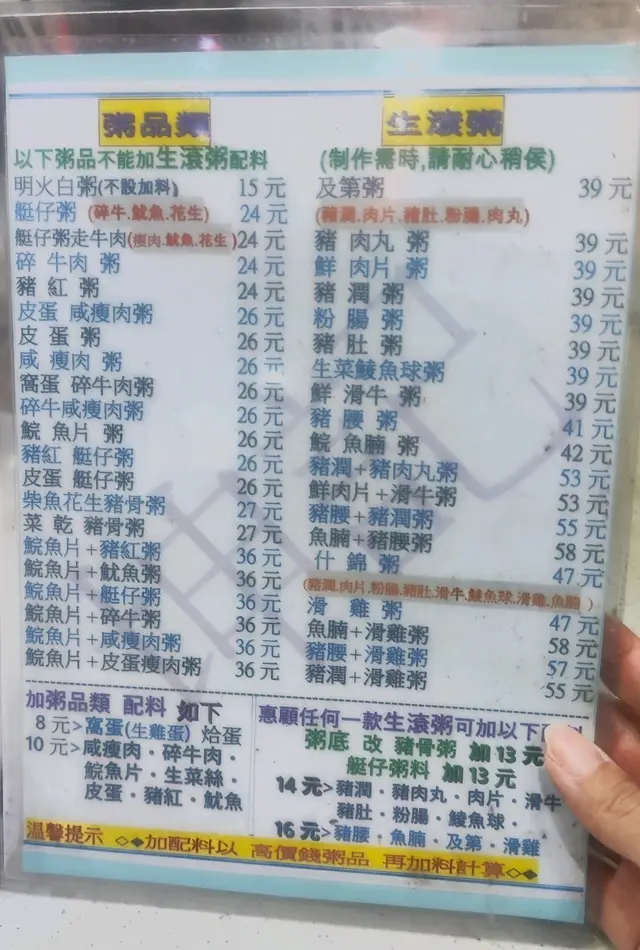 粥品類
以下粥品不能加生滾粥配料
明火白粥(不設加料) 15 元
艇仔粥 (碎牛.魷魚.花生) 24 元
艇仔粥走牛肉(瘦肉.魷魚.花生) 24 元
碎 牛肉 粥 24 元
豬 紅 粥 24 元
皮蛋 咸瘦肉粥 26 元
皮 蛋 粥 26 元
咸 瘦肉 粥 26 元
窩蛋 碎牛肉粥 26 元
碎牛咸瘦肉粥 26 元
鯇 魚片 粥 26 元
豬紅 艇仔粥 26 元
皮蛋 艇仔粥 26 元
柴魚花生豬骨粥 27 元
菜 乾 豬骨粥 27 元
鯇魚片+豬紅粥 36 元
鯇魚片+魷魚粥 36 元
鯇魚片+艇仔粥 36 元
鯇魚片+碎牛粥 36 元
鯇魚片+咸瘦肉粥 36 元
鯇魚片+皮蛋瘦肉粥 36 元
加粥品類 配料 如下
8 元>窩蛋(生雞蛋) 烚蛋
10 元>咸瘦肉·碎牛肉·
鯇魚片·生菜絲·
皮蛋·豬紅·魷魚
生滾粥
(制作需時,請耐心稍侯)
及第粥 39 元
(豬潤.肉片.豬肚.粉腸.肉丸)
豬 肉丸 粥 39 元
鮮 肉片 粥 39 元
豬 潤 粥 39 元
粉 腸 粥 39 元
豬 肚 粥 39 元
生菜鯪魚球粥 39 元
鮮 滑牛 粥 39 元
豬 腰 粥 41 元
鯇 魚腩 粥 42 元
豬潤+豬肉丸粥 53 元
鮮肉片+滑牛粥 53 元
豬腰+豬潤粥 55 元
魚腩+豬腰粥 58 元
什 錦 粥 47 元
(豬潤.肉片.粉腸.豬肚.滑牛.鯪魚球.滑雞.魚腩)
滑 雞 粥 47 元
魚腩+滑雞粥 58 元
豬腰+滑雞粥 57 元
豬潤+滑雞粥 55 元
惠顧任何一款生滾粥可加以下
粥底 改 豬骨粥 加 13 元
艇仔粥料 加 13 元
14 元>豬潤·豬肉丸·肉片·滑牛
豬肚·粉腸·鯪魚球·
16 元>豬腰·魚腩·及第·滑雞
溫馨提示 ◇◆加配料以 高價錢粥品 再加料計算◇◆